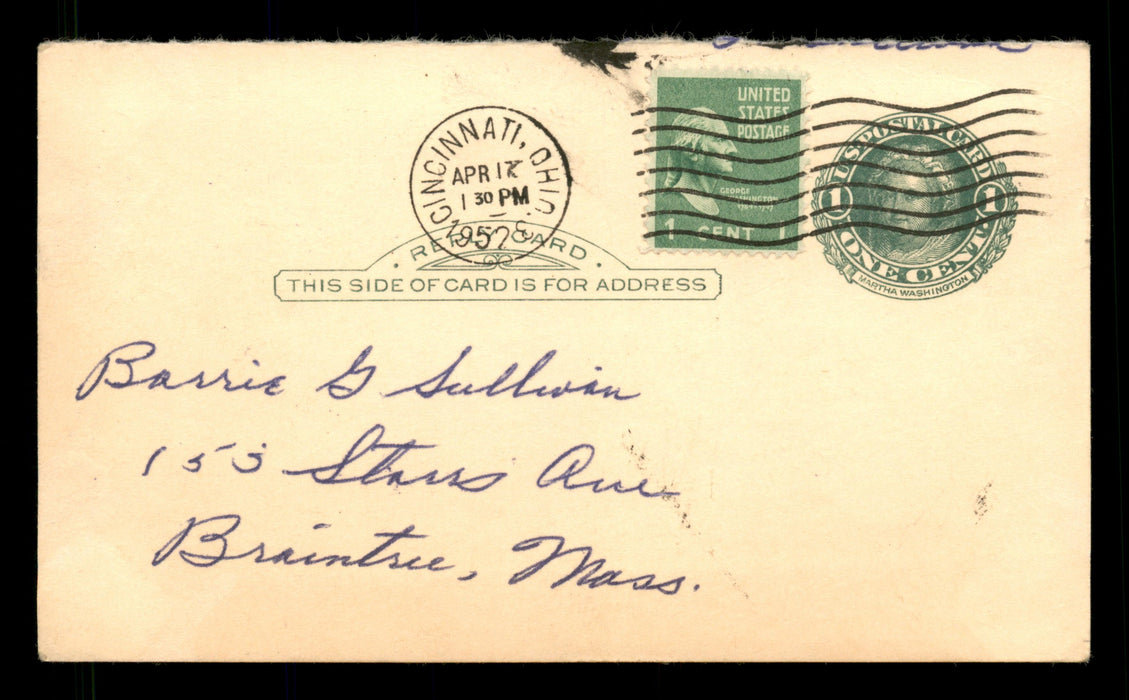 CINCINNATI, OHIO.
APR 17
1 30 PM
1952
UNITED
STATES
POSTAGE
GEORGE
WASHINGTON
1 CENT 1
U.S. POSTAL CARD
1 1
ONE CENT
MARTHA WASHINGTON
REPLY CARD
THIS SIDE OF CARD IS FOR ADDRESS
Barrie G Sullivan
153 Starrs Ave
Braintree, Mass.